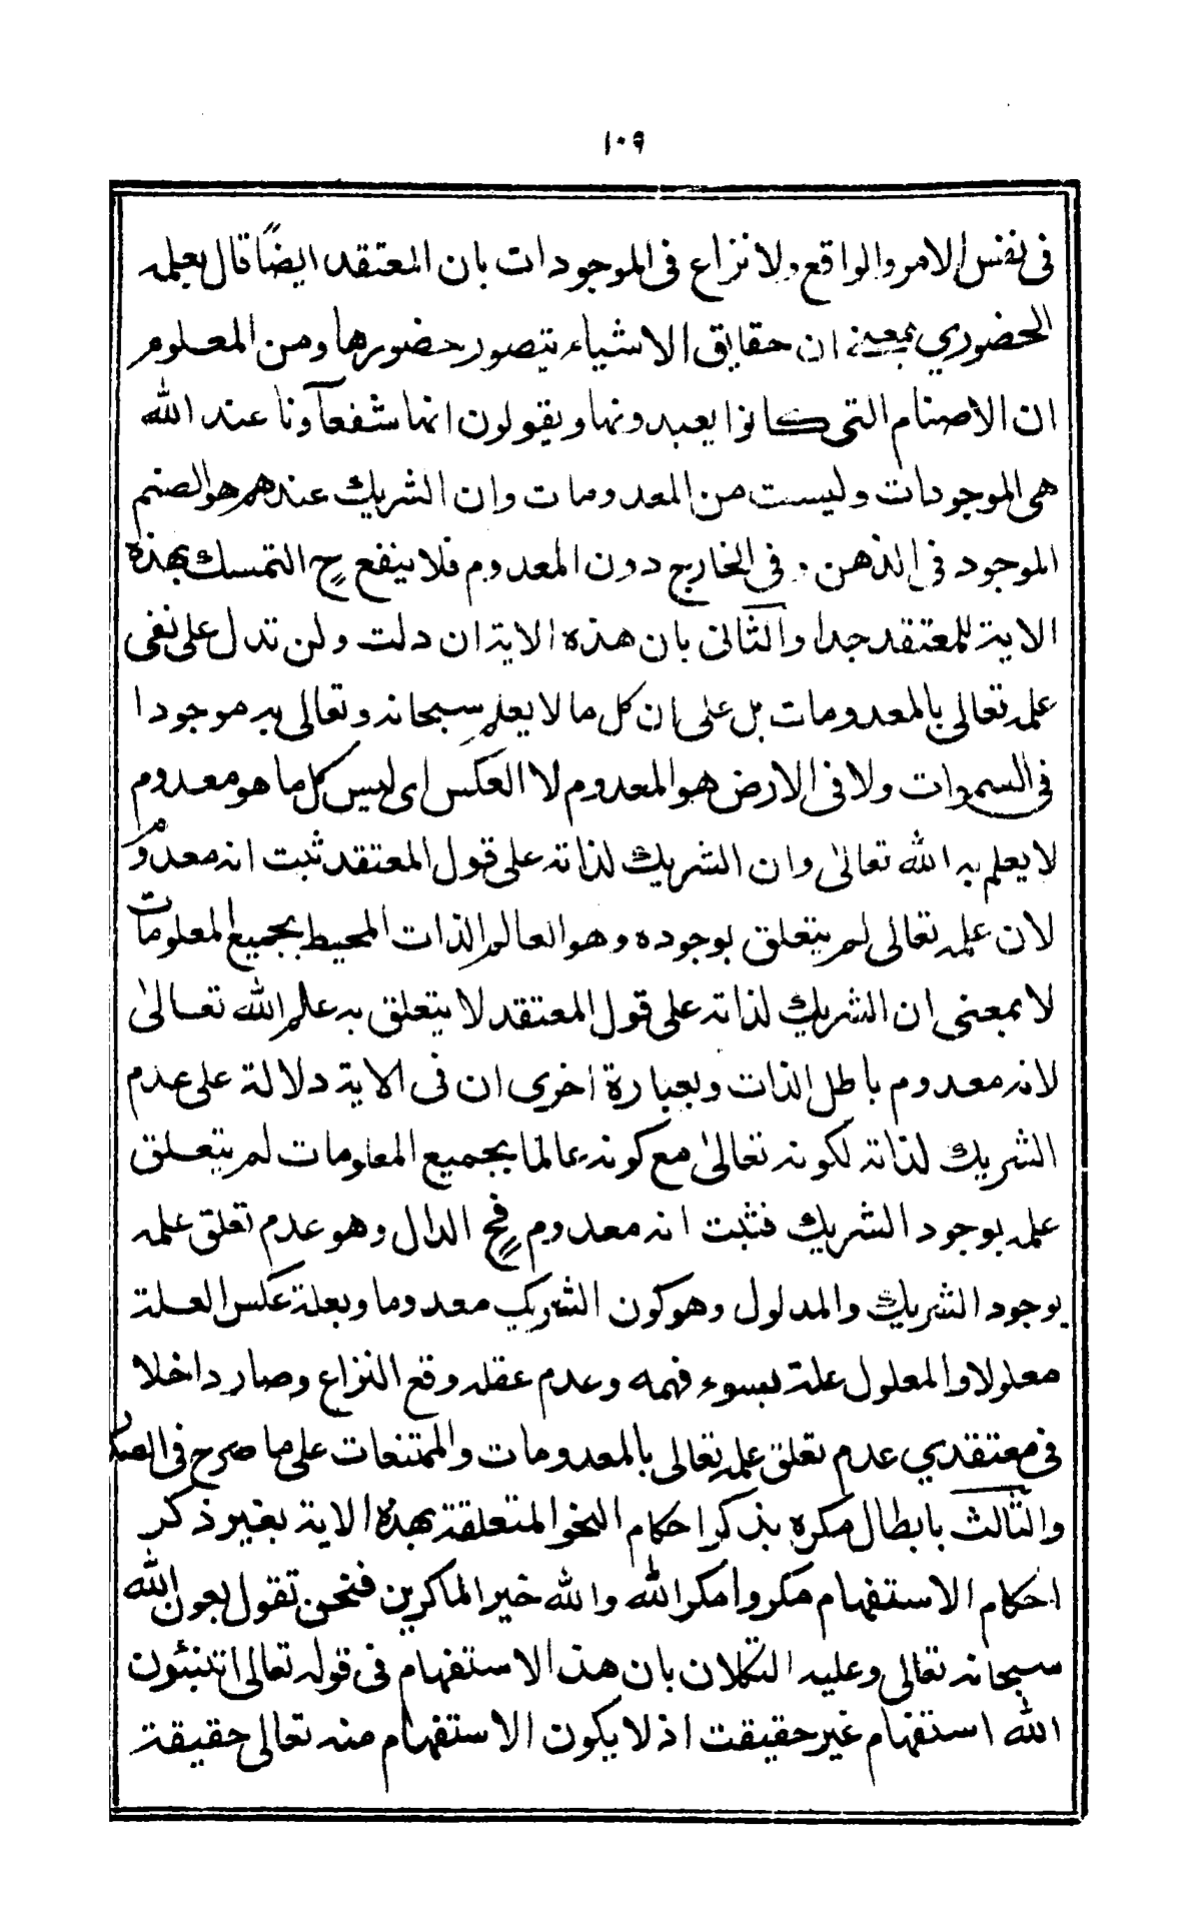 ١٠٩
فى نفس الامر والواقع ولا نزاع فى الموجودات بان المعتقد ايضاً قال بعلمه
الحضوري بمعنى ان حقايق الاشياء يتصور حضورها ومن المعلوم
ان الاصنام التى كانوا يعبدونها ويقولون انها شفعآونا عند الله
هى الموجودات وليست من المعدومات وان الشريك عندهم هو الصنم
الموجود فى الذهن وفى الخارج دون المعدوم فلا ينفع ح التمسك بهذه
الاية للمعتقد جدا والثانى بان هذه الاية ان دلت ولن تدل على نفى
علمه تعالى بالمعدومات بل على ان كل ما لا يعلم سبحانه وتعالى به موجودا
فى السموات ولا فى الارض هو المعدوم لا العكس اى ليس كل ما هو معدوم
لا يعلم به الله تعالىٰ وان الشريك لذاته على قول المعتقد ثبت انه معدوم
لان علمه تعالى لم يتعلق بوجوده وهو العالم الذات المحيط بجميع المعلومات
لا بمعنى ان الشريك لذاته على قول المعتقد لا يتعلق به علم الله تعالىٰ
لانه معدوم باطل الذات وبعبارة اخرى ان فى الاية دلالة على عدم
الشريك لذاته لكونه تعالىٰ مع كونه عالما بجميع المعلومات لم يتعلق
علمه بوجود الشريك فثبت انه معدوم فح الدال وهو عدم تعلق علمه
بوجود الشريك والمدلول وهو كون الشريك معدوما وبعلة عكس العلة
معلولا والمعلول علة بسوء فهمه وعدم عقله وقع النزاع وصار داخلا
فى معتقدي عدم تعلق علمه تعالى بالمعدومات والممتنعات على ما صرح فى
والثالث بابطال مكره بذكر احكام النحو المتعلقة بهذه الاية بغير ذكر
احكام الاستفهام مكروا مكر الله والله خير الماكرين فنحن نقول بعون الله
سبحانه تعالى وعليه التكلان بان هذا الاستفهام فى قوله تعالى اتنبئون
الله استفهام غير حقيقت اذ لا يكون الاستفهام منه تعالى حقيقة